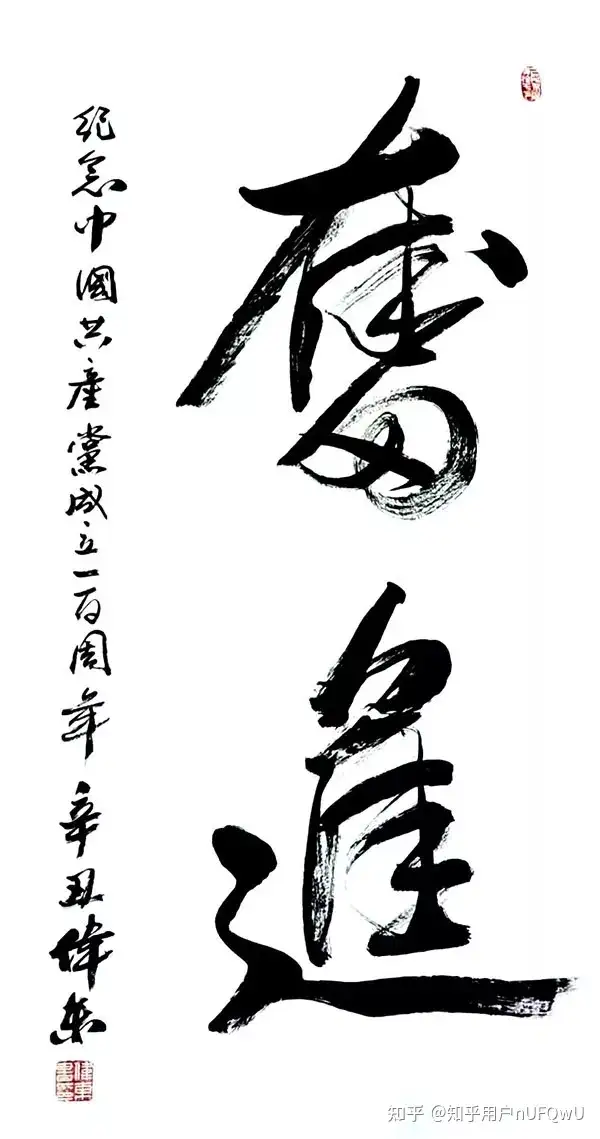 奮進
紀念中國共產黨成立一百周年 辛丑偉東
知乎 @知乎用户nUFQwU